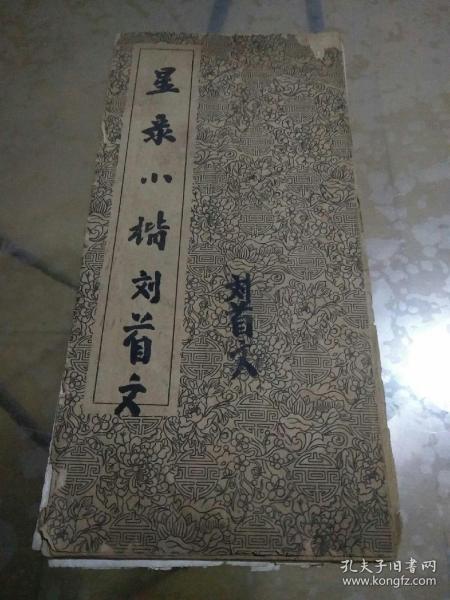 星录小楷刘首文
刘首文
孔夫子旧书网
www.kongfz.com